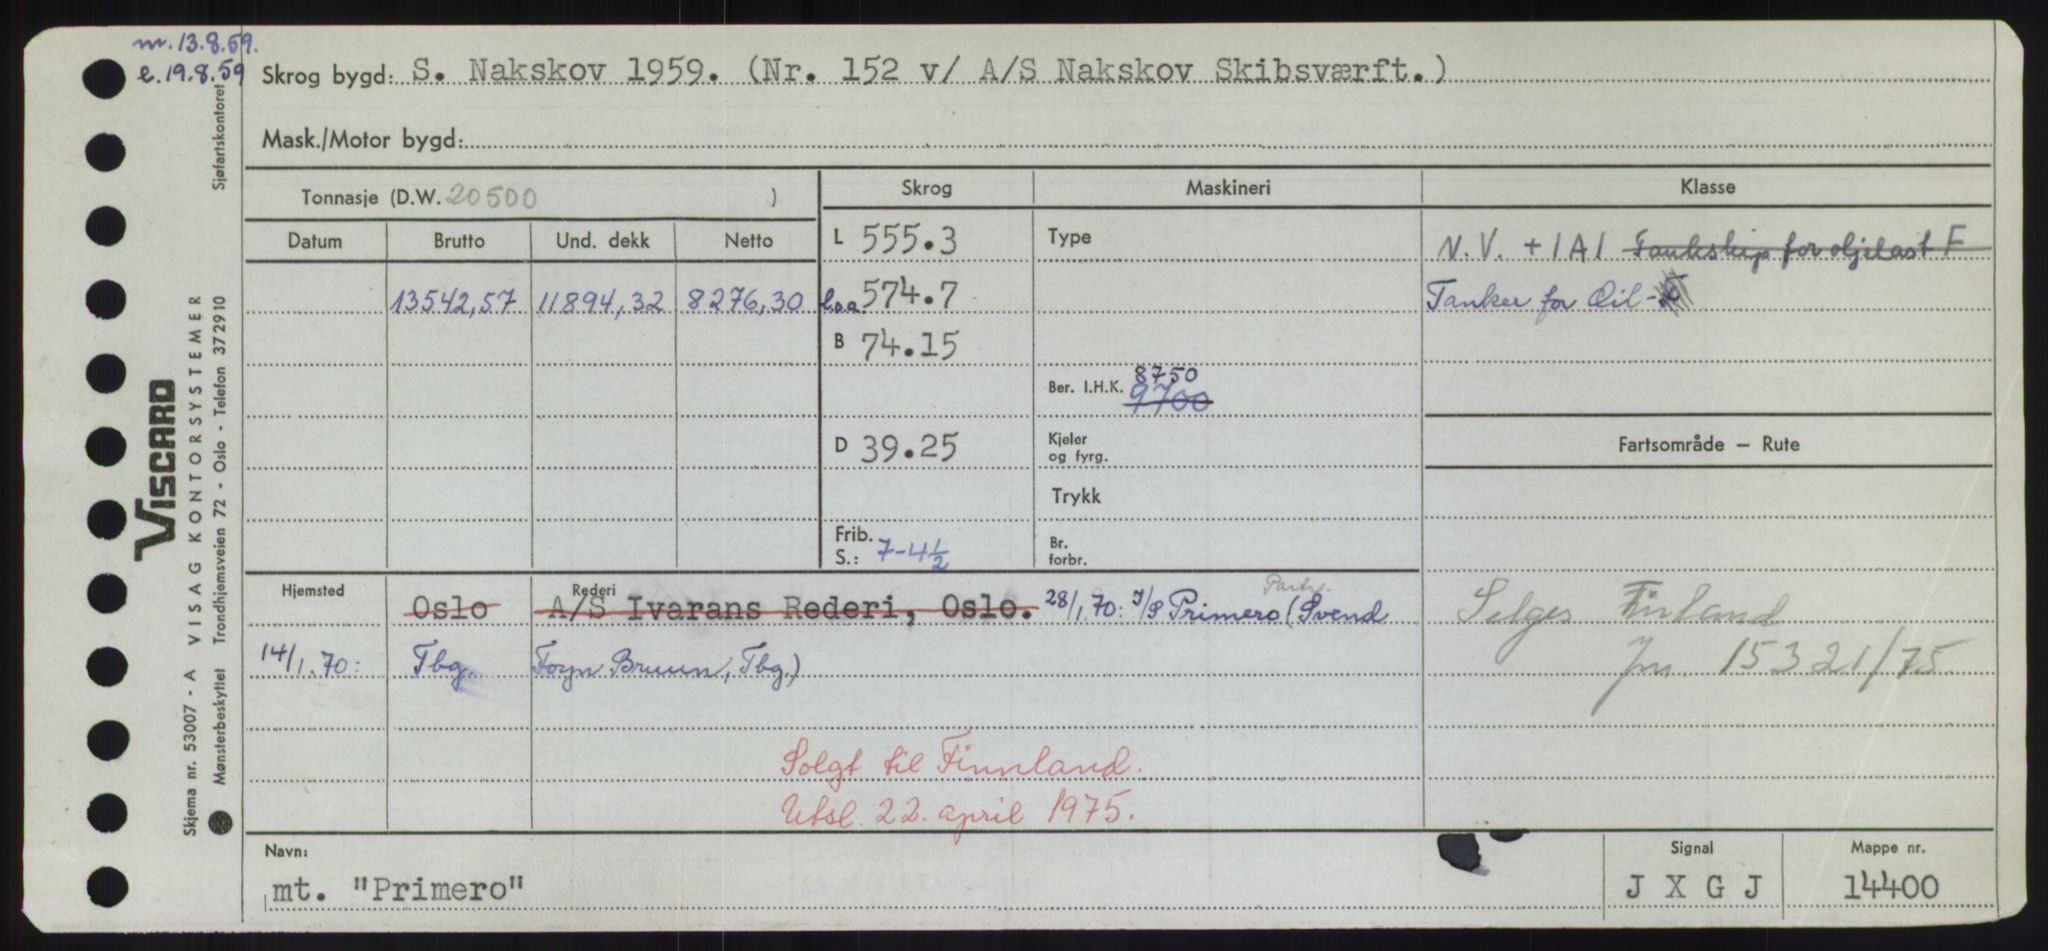 m. 13.8.59.
e. 19.8.59
Skrog bygd: S. Nakskov 1959. (Nr. 152 v/ A/S Nakskov Skibsværft.)
Mask./Motor bygd:
Tonnasje (D.W. 20500 )
Skrog Maskineri Klasse
Datum Brutto Und. dekk Netto
L 555.3 Type N.V. + 1A1 Tankskip for oljelast F
13542,57 11894,32 8276,30 l.o.a. 574.7 Tanker for Oil -
B 74.15
Ber. I.H.K. 8750
9700
D 39.25 Kjeler og fyrg. Fartsområde – Rute
Trykk
Frib. S.: 7-4½ Br. forbr.
Hjemsted Rederi
Oslo A/S Ivarans Rederi, Oslo. 28/1.70: I/S Primero (Svend
Partr.
14/1.70: Tbg Foyn Bruun, Tbg.)
Selges Finland
Jnr. 15321/75
Solgt til Finnland.
Utsl. 22. april 1975.
Navn: mt. "Primero"
Signal J X G J
Mappe nr. 14400
Skjema nr. 53007 - A VISAG KONTORSYSTEMER
VISCARD
Mønsterbeskyttet Trondhjemsveien 72 - Oslo - Telefon 372910
Sjøfartskontoret